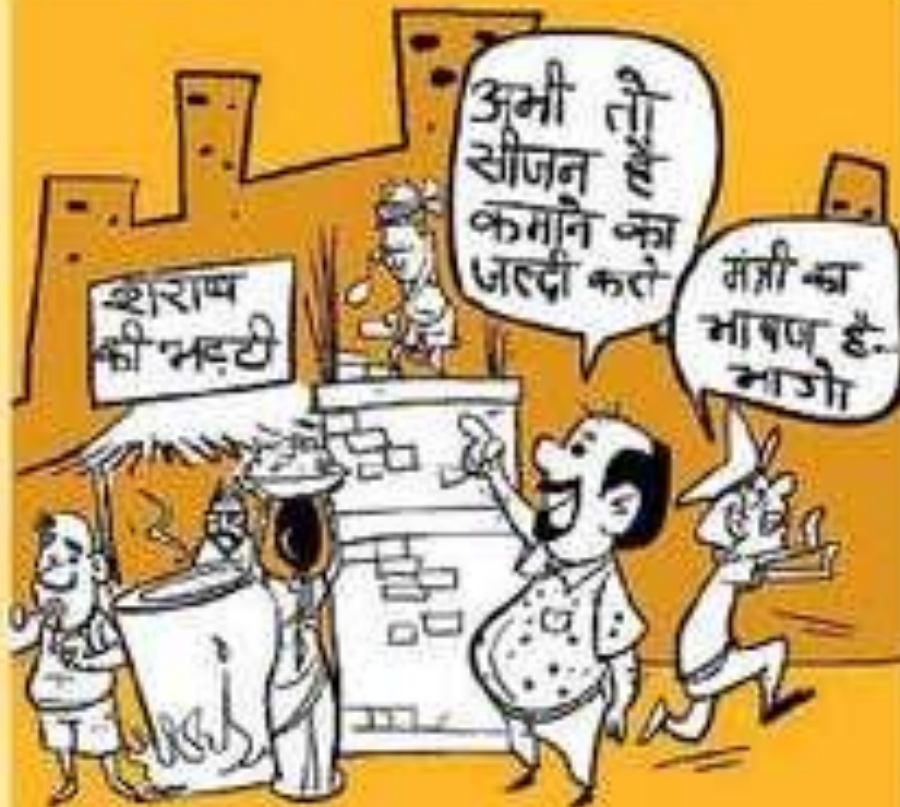 शराब
की भट्टी
अभी तो
सीजन है
कमाने का
जल्दी करो
मंत्री का
भाषण है..
भागो